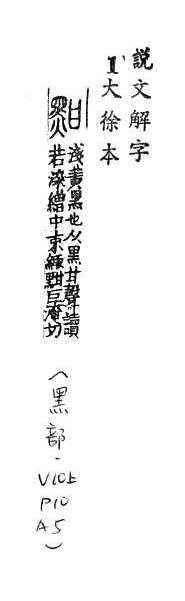 説文解字
1大徐本
淺黃黑也从黑甘聲讀
若染繒中束緅黚巨淹切
(黑部·
V10上
P10
A5)